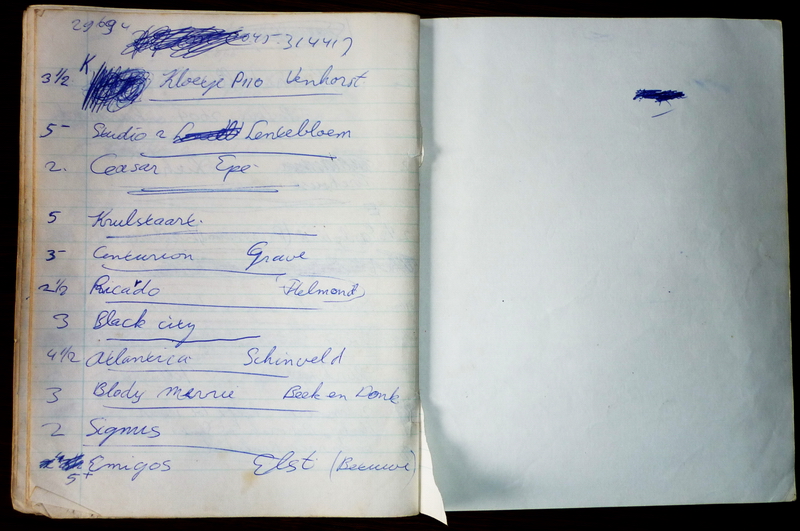 045-314417
3 1/2 K Kloetje Pllo Venhorst
5- Studio 2 Lentebloem
2. Ceasar Epe
5 Krulstaart.
3- Centurion Grave
2 1/2 Picardo (Helmond)
3 Black city
4 1/2 Atlantica Schinveld
3 Blody merrie Beek en Donk
2 Sigmus
5+ Emigos Elst (Beeuwe)